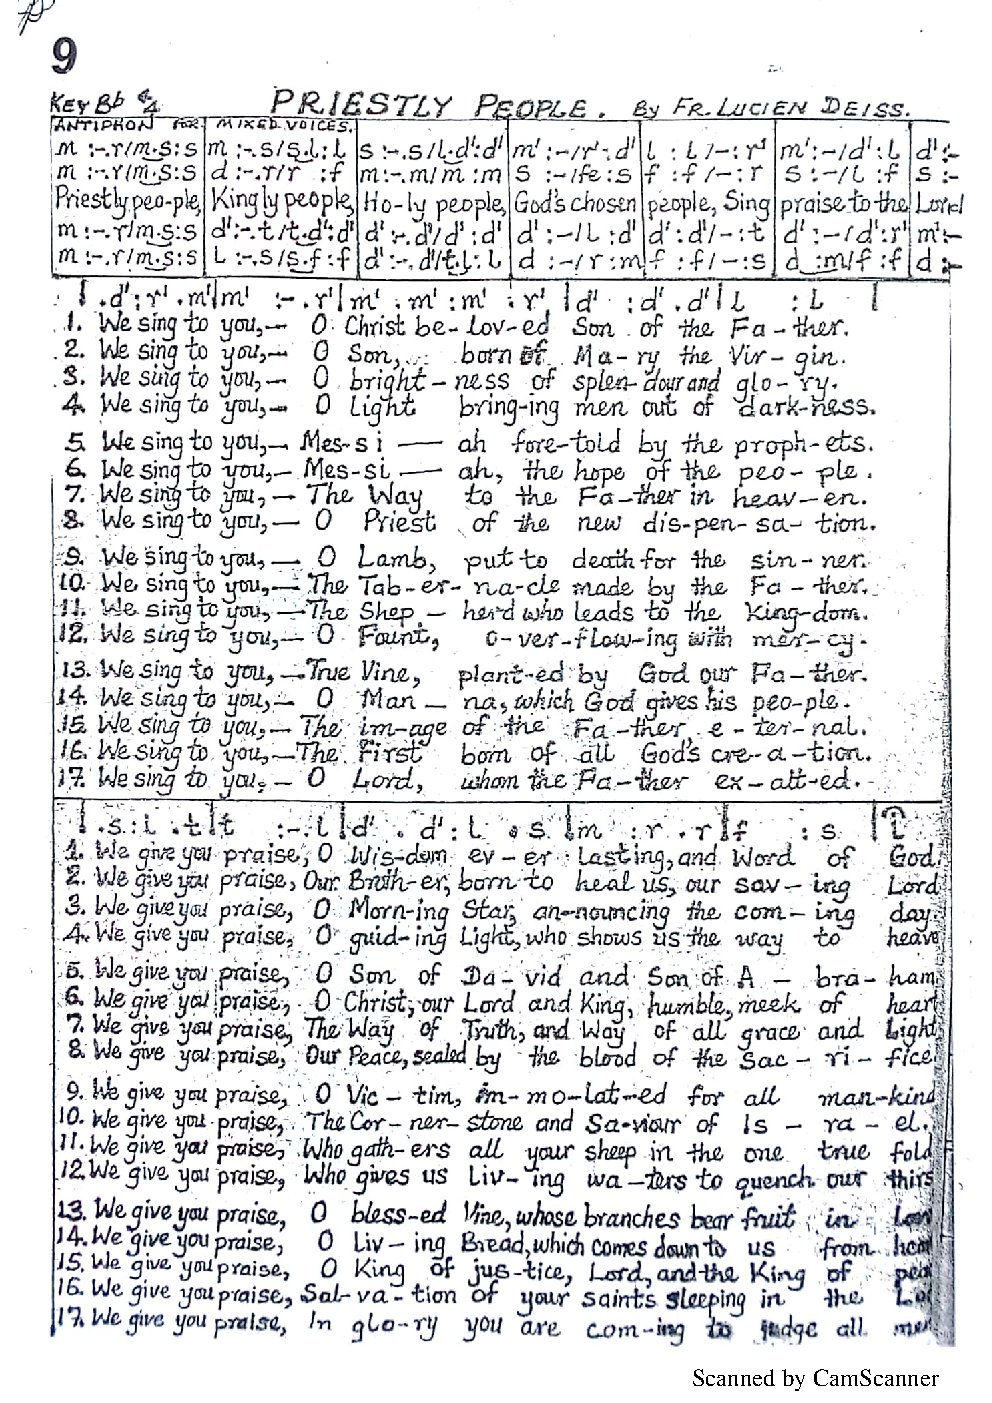 9
KEY Bb 4/4 PRIESTLY PEOPLE. By FR. LUCIEN DEISS.
ANTIPHON FOR MIXED VOICES.
m :-.r/m.s:s m :-.s/s.l:l s :-.s/l.d':d' m':-/r'.d' l :l/-:r' m':-/d':l d':-
m :-.r/m.s:s d :-.r/r :f m:-.m/m :m s :-/fe:s f :f/-:r s :-/l :f s :-
Priestly peo-ple, Kingly people, Ho-ly people, God's chosen people, Sing praise to the Lord
m :-.r/m.s:s d':-.t/t.d':d' d':-.d'/d':d' d':-/l:d' d':d'/-:t d':-/d':r' m':-
m :-.r/m.s:s l :-.s/s.f:f d':-.d'/t.l:l d :-/r:m f :f/-:s d :m/f :f d :-
| .d':r'.m'|m' :-.r'|m' .m':m' .r'|d' :d'.d'|l :l |
1. We sing to you,— O Christ be-lov-ed Son of the Fa-ther.
2. We sing to you,— O Son, born of Ma-ry the Vir-gin.
3. We sing to you,— O bright-ness of splen-dour and glo-ry.
4. We sing to you,— O Light bring-ing men out of dark-ness.
5. We sing to you,— Mes-si — ah fore-told by the proph-ets.
6. We sing to you,— Mes-si — ah, the hope of the peo-ple.
7. We sing to you,— The Way to the Fa-ther in heav-en.
8. We sing to you,— O Priest of the new dis-pen-sa-tion.
9. We sing to you,— O Lamb, put to death for the sin-ner.
10. We sing to you,— The Tab-er-na-cle made by the Fa-ther.
11. We sing to you,— The Shep-herd who leads to the King-dom.
12. We sing to you,— O Fount, o-ver-flow-ing with mer-cy.
13. We sing to you,— True Vine, plant-ed by God our Fa-ther.
14. We sing to you,— O Man-na, which God gives his peo-ple.
15. We sing to you,— The im-age of the Fa-ther e-ter-nal.
16. We sing to you,— The First born of all God's cre-a-tion.
17. We sing to you,— O Lord, whom the Fa-ther ex-alt-ed.
| .s:l .t|t :-.l|d' .d':l .s|m :r .r|f :s |l
1. We give you praise, O Wis-dom ev-er lasting, and Word of God.
2. We give you praise, Our Broth-er, born to heal us, our sav-ing Lord
3. We give you praise, O Morn-ing Star, an-nouncing the com-ing day.
4. We give you praise, O guid-ing Light, who shows us the way to heave
5. We give you praise, O Son of Da-vid and Son of A-bra-ham
6. We give you praise, O Christ, our Lord and King, humble, meek of heart
7. We give you praise, The Way of Truth, and Way of all grace and Light
8. We give you praise, Our Peace, sealed by the blood of the Sac-ri-fice
9. We give you praise, O Vic-tim, im-mo-lat-ed for all man-kind
10. We give you praise, The Cor-ner-stone and Sa-viour of Is-ra-el.
11. We give you praise, Who gath-ers all your sheep in the one true fold
12. We give you praise, Who gives us Liv-ing wa-ters to quench our thirs
13. We give you praise, O bless-ed Vine, whose branches bear fruit in
14. We give you praise, O Liv-ing Bread, which comes down to us from
15. We give you praise, O King of jus-tice, Lord, and the King of pea
16. We give you praise, Sal-va-tion of your saints sleeping in the
17. We give you praise, In glo-ry you are com-ing to judge all
Scanned by CamScanner